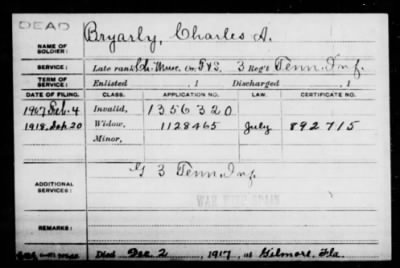 DEAD
NAME OF SOLDIER: Bryarly, Charles A.
SERVICE: Late rank, Ch. Musc. Co. F & S, 3 Reg't Tenn. Inf.
TERM OF SERVICE: Enlisted , 1 Discharged , 1
DATE OF FILING. CLASS. APPLICATION NO. LAW. CERTIFICATE NO.
1907 Feb. 4 Invalid, 1356320
1918 Sep 20 Widow, 1128465 July 892715
Minor,
ADDITIONAL SERVICES: G 3 Tenn. Inf.
WAR WITH SPAIN
REMARKS:
Died Dec 2, 1917, at Gilmore, Fla.